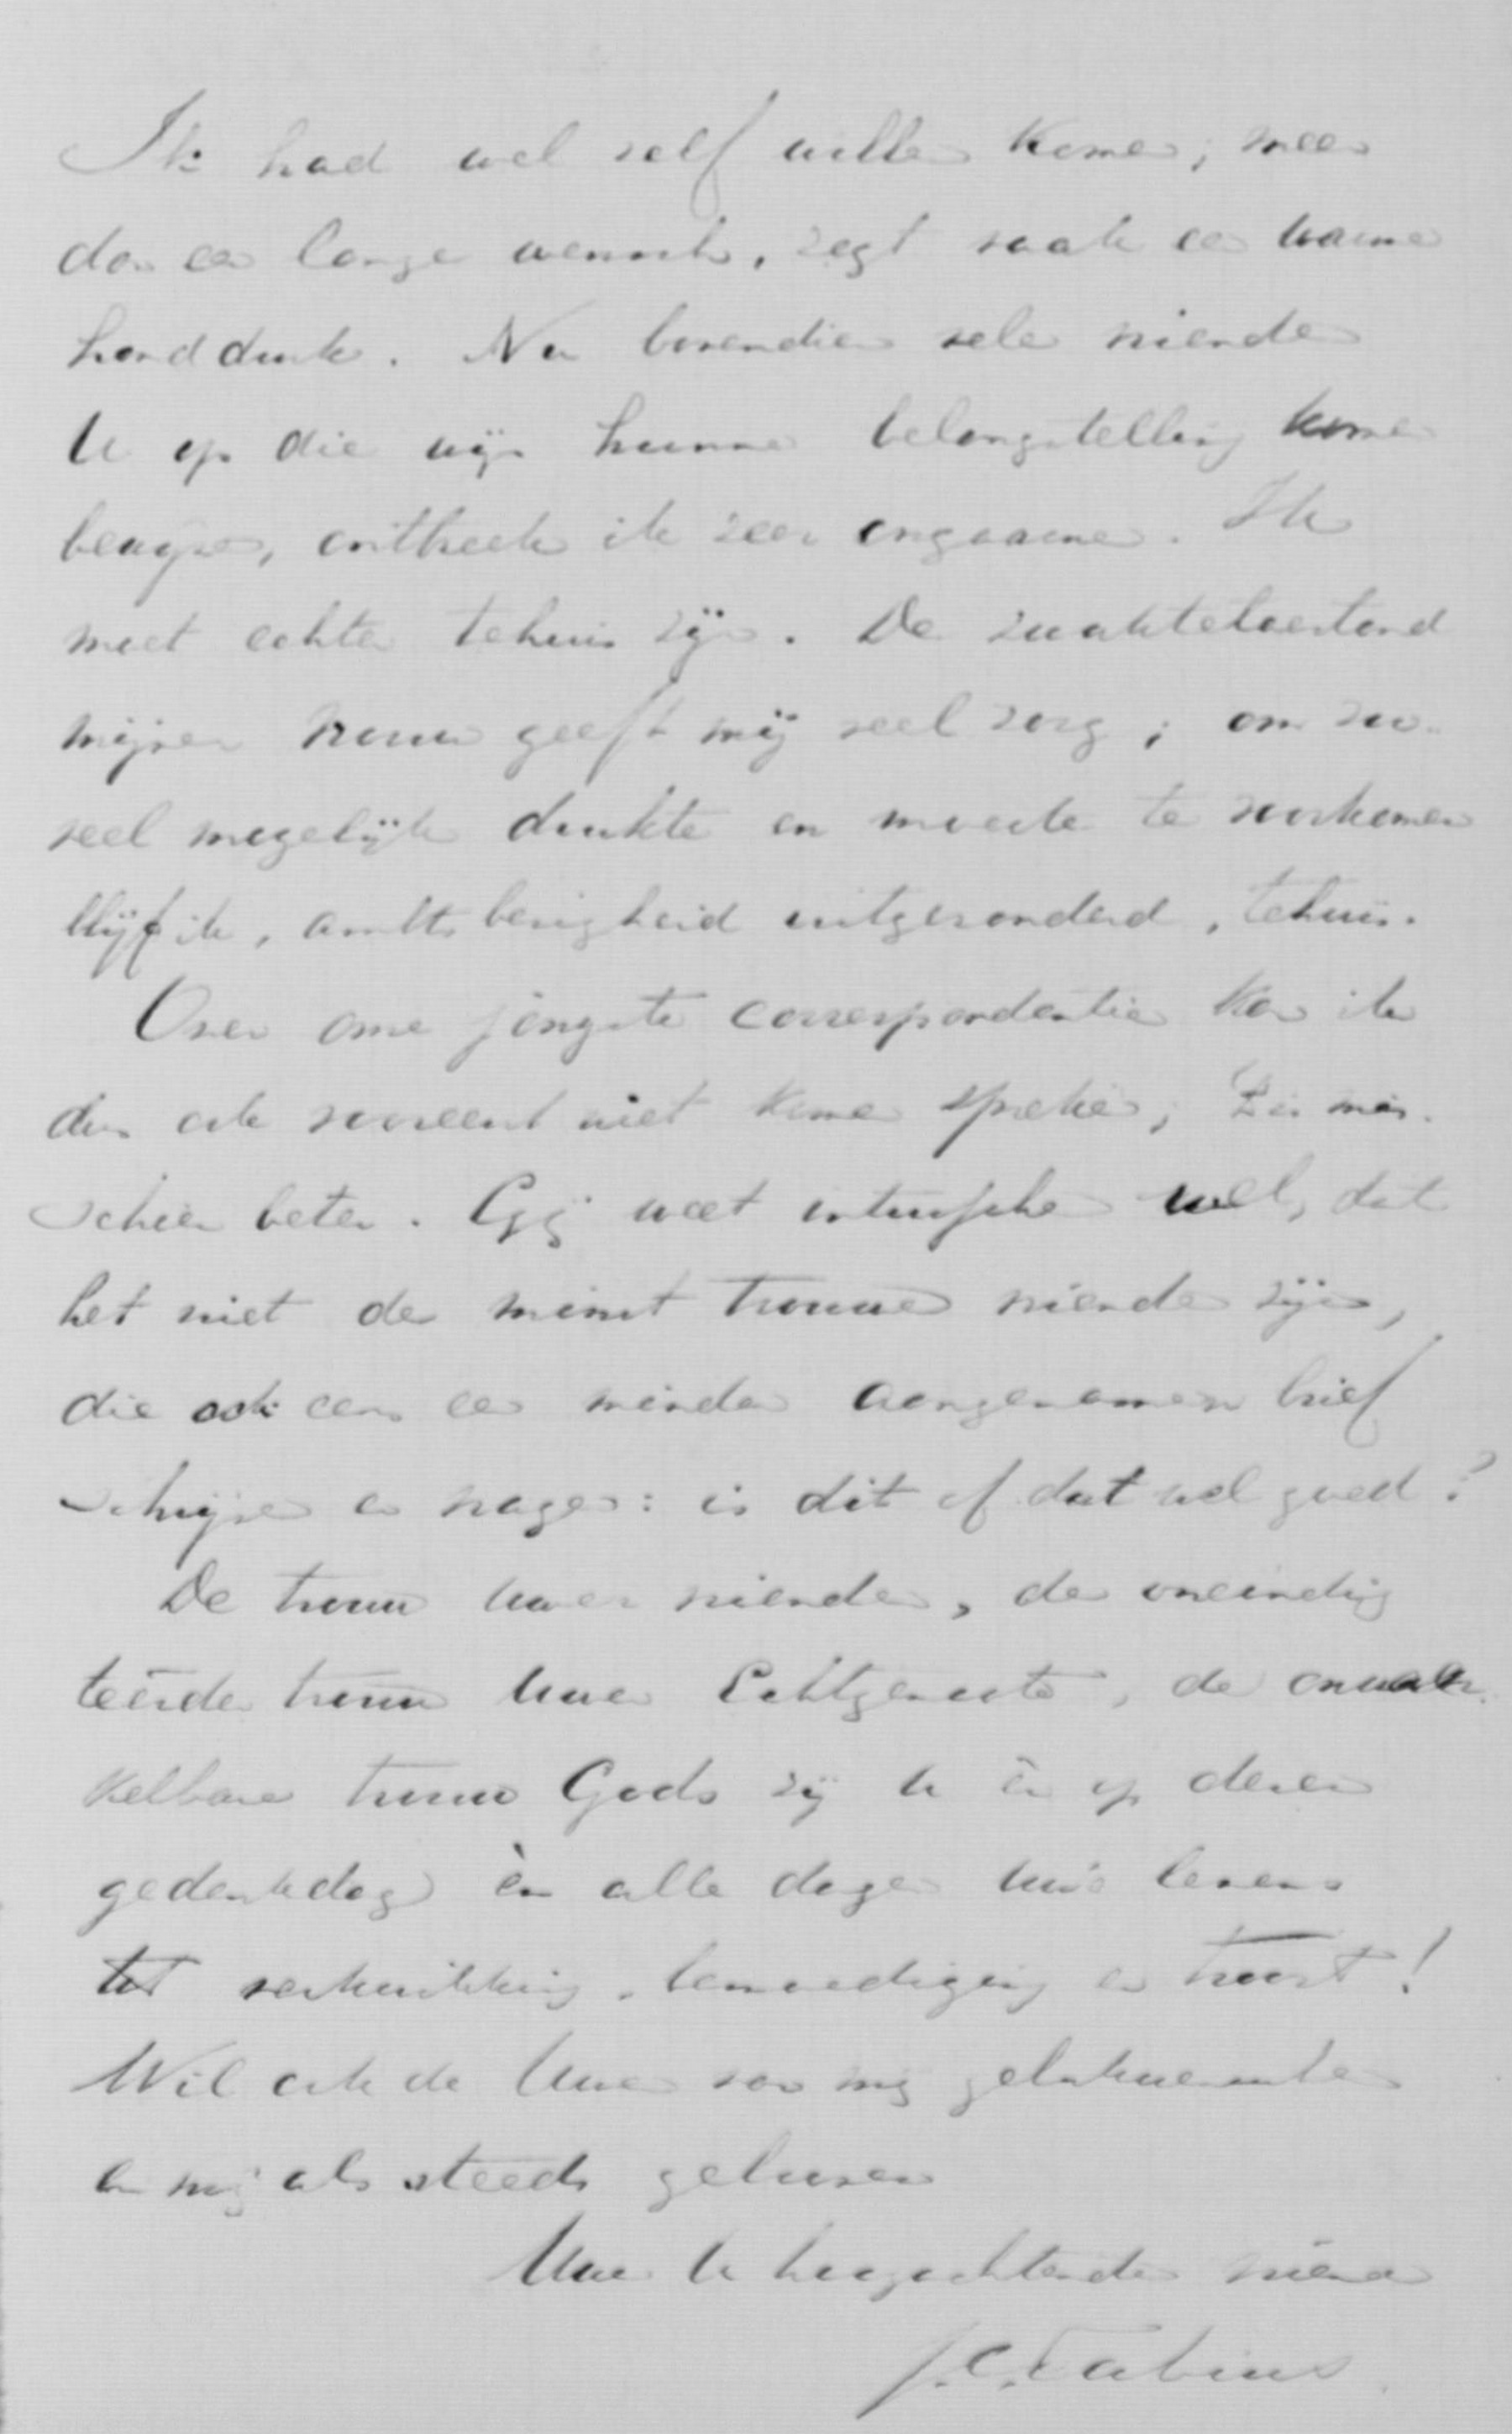 Ik had wel zelf willen komen; meer
dan een lange wensch, zegt vaak een warme
handdruk. Nu bovendien vele vrienden
U op die wijs hunne belangstelling komen
bewijzen, ontbreek ik zeer ongaarne. Ik
moet echter tehuis zijn. De zwaktetoestand
mijner vrouw geeft mij veel zorg; om zoo-
veel mogelijk drukte en moeite te voorkomen
blijf ik, ambtsbezigheid uitgezonderd, tehuis.
Over onze jongste correspondentie kan ik
dus ook vooreerst niet komen spreken; 't Is mis-
schien beter. Gij weet intusschen wel, dat
het niet de minst trouwe vrienden zijn,
die ook eens een minder aangenamen brief
schrijven en vragen: is dit of dat wel goed?
De trouw uwer vrienden, de oneindig
teerder trouw uwer Echtgenoote, de onwan-
kelbare trouw Gods zij U èn op dezen
gedenkdag èn alle dagen uws levens
tot verkwikking, bemoediging en troost!
Wil ook de Uwen van mij gelukwenschen
en mij als steeds gelooven
Uwe U hoogachtende vriend
J. C. Fabius.